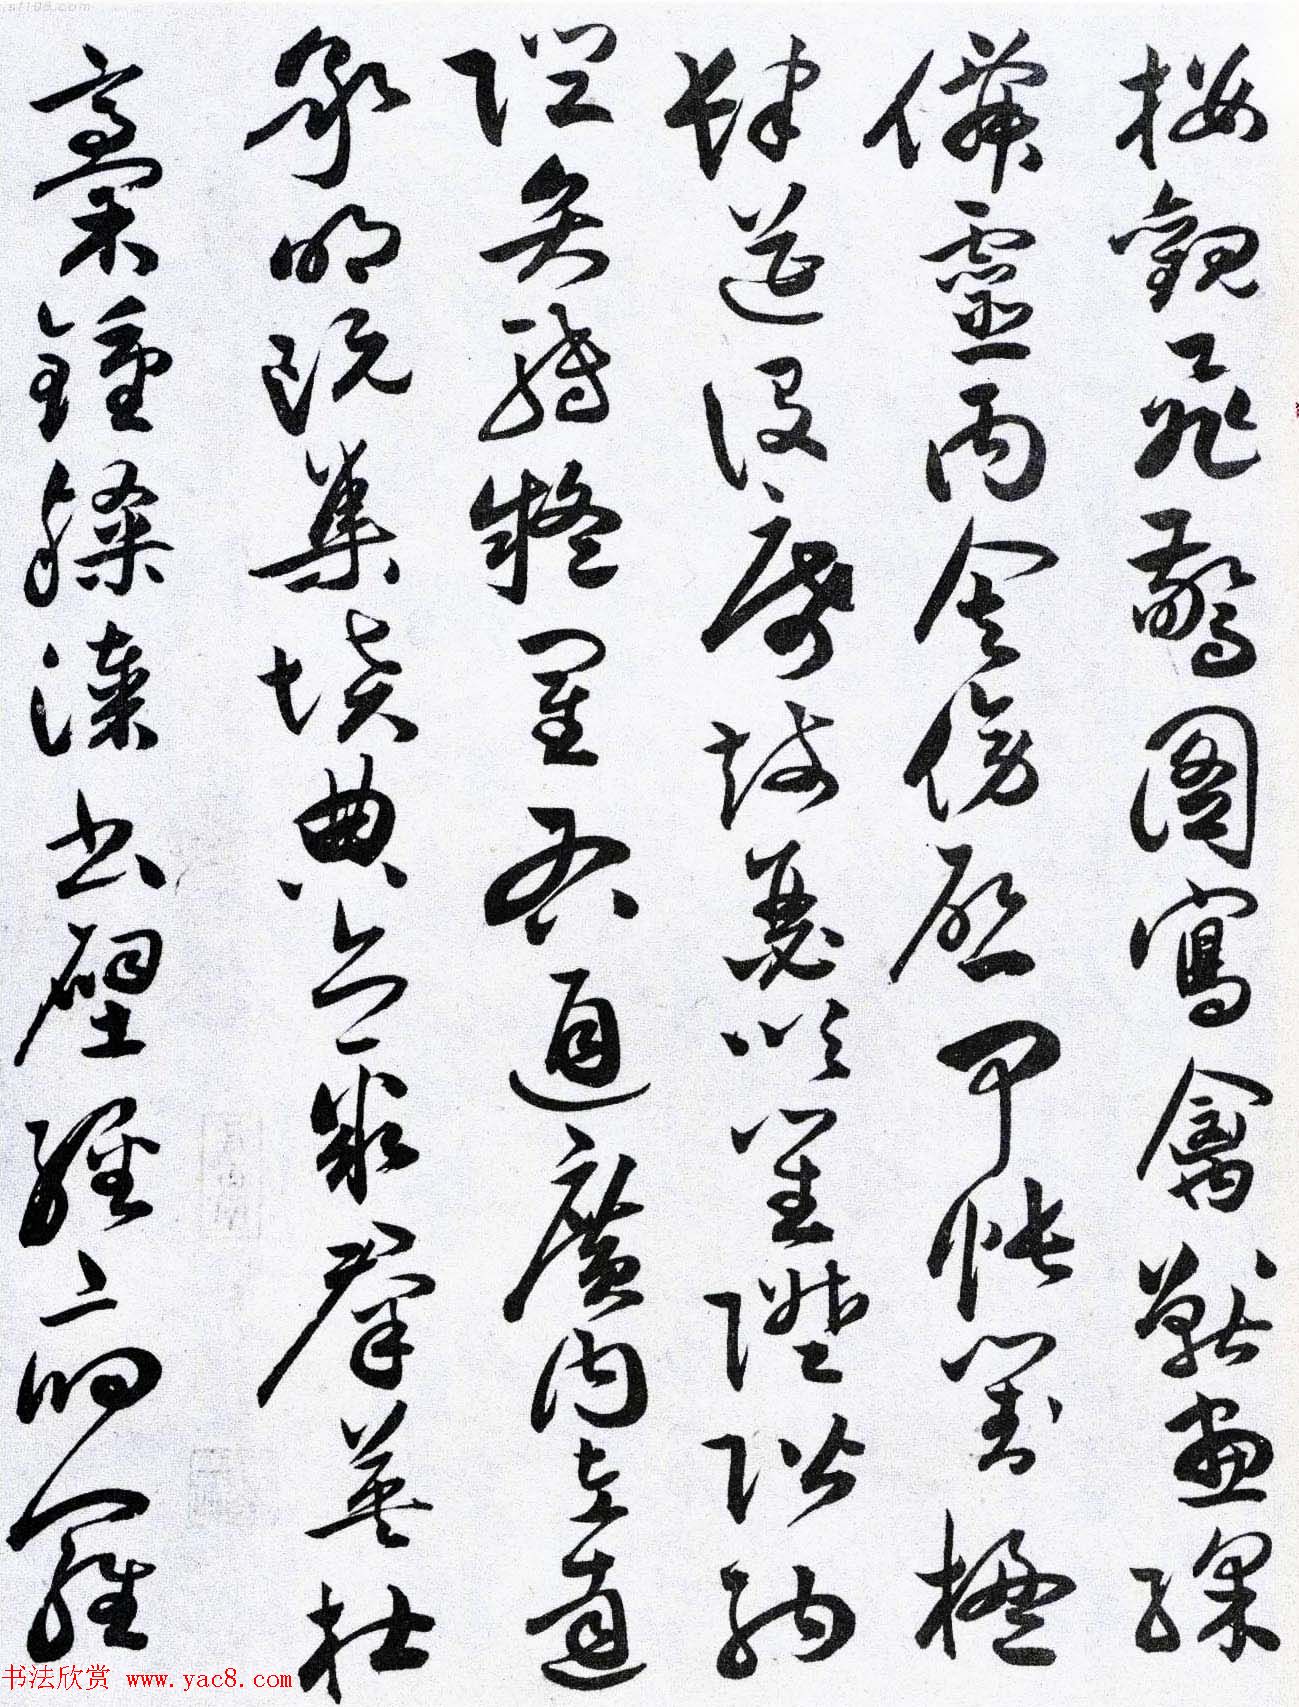 樓觀飛驚圖寫禽獸畫綵
僊靈丙舍傍啟甲帳對楹
肆筵設席鼓瑟吹笙陞階納
陛弁轉疑星右通廣內左達
承明既集墳典亦聚群英杜
稾鍾隸漆書壁經府羅
书法欣赏 www.yac8.com